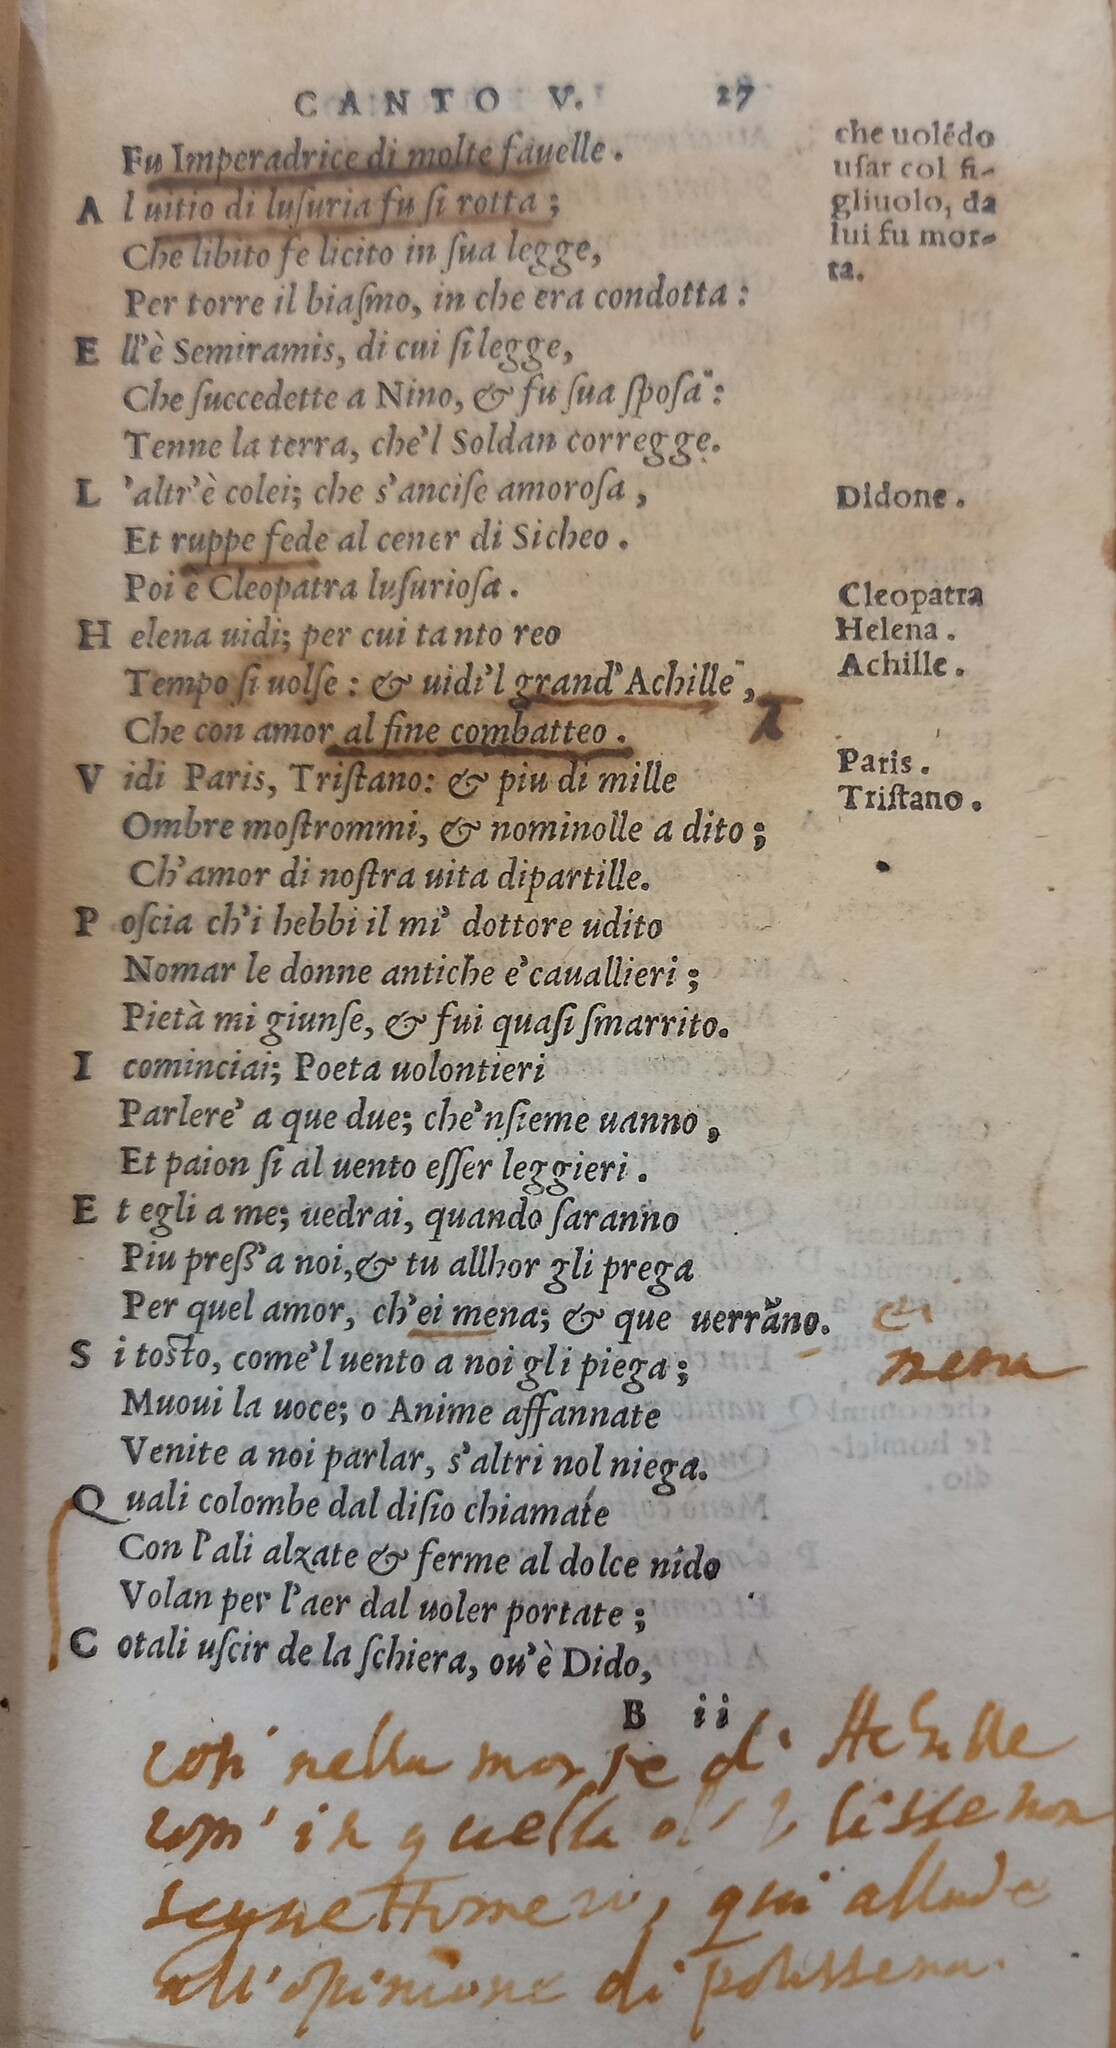 CANTO V. 27
Fu Imperadrice di molte fauelle.
A l uitio di luſuria fu ſi rotta;
Che libito fe licito in ſua legge,
Per torre il biaſmo, in che era condotta:
E ll'è Semiramis, di cui ſi legge,
Che ſuccedette a Nino, & fu ſua ſpoſa":
Tenne la terra, che'l Soldan corregge.
L 'altr'è colei; che s'anciſe amoroſa,
Et ruppe fede al cener di Sicheo.
Poi è Cleopatra luſurioſa.
H elena uidi; per cui tanto reo
Tempo ſi uolſe: & uidi'l grand'Achille",
Che con amor al fine combatteo.
V idi Paris, Triſtano: & piu di mille
Ombre moſtrommi, & nominolle a dito;
Ch'amor di noſtra uita dipartille.
P oſcia ch'i hebbi il mi' dottore udito
Nomar le donne antiche e'cauallieri;
Pietà mi giunſe, & fui quaſi ſmarrito.
I cominciai; Poeta uolontieri
Parlere' a que due; che'nſieme uanno,
Et paion ſi al uento eſſer leggieri.
E t egli a me; uedrai, quando ſaranno
Piu preſſ'a noi, & tu allhor gli prega
Per quel amor, ch'ei mena; & que uerrãno.
S i toſto, come'l uento a noi gli piega;
Muoui la uoce; o Anime affannate
Venite a noi parlar, s'altri nol niega.
Q uali colombe dal diſio chiamate
Con l'ali alzate & ferme al dolce nido
Volan per l'aer dal uoler portate;
C otali uſcir de la ſchiera, ou'è Dido,
B ii
che uolẽdo
uſar col fi-
gliuolo, da
lui fu mor-
ta.
Didone.
Cleopatra
Helena.
Achille.
Paris.
Triſtano.
ei
mena
nella morte d' Achille
in quella d' Ulisse non
, qui allude
all'opinione di polissena.